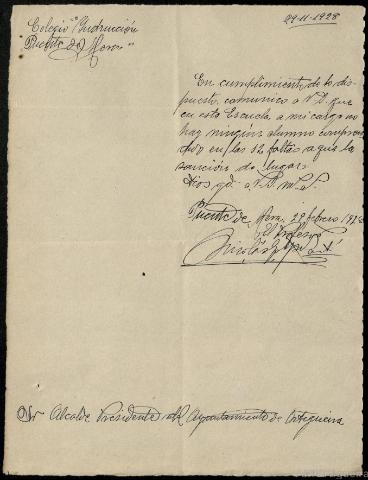 Colegio "Instrucción
Puente de Mera"
29-11-1928
En cumplimiento de lo dis-
puesto, comunico a V.S. que
en esta Escuela a mi cargo no
hay ningún alumno compren-
dido en las 12 faltas a que la
sanción da lugar.
Dios gd. a V.S. m. a.
Puente de Mera, 29 febrero 192
El Profesor
Sr Alcalde Presidente del Ayuntamiento de Ortigueira